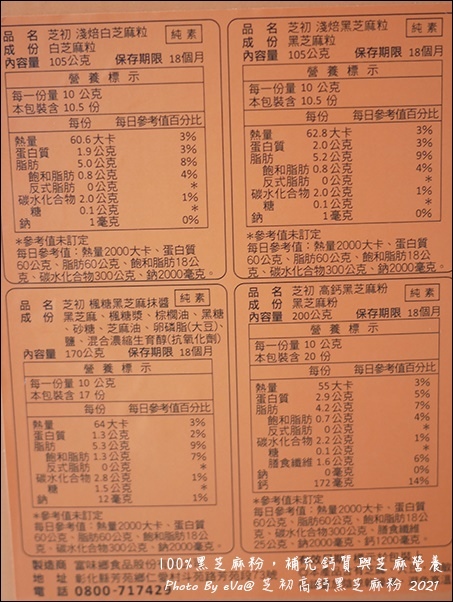 品 名 芝初 淺焙白芝麻粒 純素
成 份 白芝麻粒
內容量 105公克 保存期限 18個月
營 養 標 示
每一份量 10 公克
本包裝含 10.5 份
每份 每日參考值百分比
熱量 60.6大卡 3%
蛋白質 1.9公克 3%
脂肪 5.0公克 8%
飽和脂肪 0.8公克 4%
反式脂肪 0公克 *
碳水化合物 2.0公克 1%
糖 0.1公克 *
鈉 1毫克 0%
*參考值未訂定
每日參考值：熱量2000大卡、蛋白質
60公克、脂肪60公克、飽和脂肪18公
克、碳水化合物300公克、鈉2000毫克。
品 名 芝初 淺焙黑芝麻粒 純素
成 份 黑芝麻粒
內容量 105公克 保存期限 18個月
營 養 標 示
每一份量 10 公克
本包裝含 10.5 份
每份 每日參考值百分比
熱量 62.8大卡 3%
蛋白質 2.0公克 3%
脂肪 5.2公克 9%
飽和脂肪 0.8公克 4%
反式脂肪 0公克 *
碳水化合物 2.0公克 1%
糖 0.1公克 *
鈉 1毫克 0%
*參考值未訂定
每日參考值：熱量2000大卡、蛋白質
60公克、脂肪60公克、飽和脂肪18公
克、碳水化合物300公克、鈉2000毫克。
品 名 芝初 楓糖黑芝麻抹醬 純素
成 份 黑芝麻、楓糖漿、棕櫚油、黑糖
、砂糖、芝麻油、卵磷脂(大豆)、
鹽、混合濃縮生育醇(抗氧化劑)
內容量 170公克 保存期限 18個月
營 養 標 示
每一份量 10 公克
本包裝含 17 份
每份 每日參考值百分比
熱量 64大卡 3%
蛋白質 1.3公克 2%
脂肪 5.3公克 9%
飽和脂肪 1.3公克 7%
反式脂肪 0公克 *
碳水化合物 2.8公克 1%
糖 1.5公克 *
鈉 12毫克 1%
*參考值未訂定
每日參考值：熱量2000大卡、蛋白質
60公克、脂肪60公克、飽和脂肪18公
克、碳水化合物300公克、鈉2000毫克。
品 名 芝初 高鈣黑芝麻粉 純素
成 份 黑芝麻粉
內容量 200公克 保存期限 18個月
營 養 標 示
每一份量 10 公克
本包裝含 20 份
每份 每日參考值百分比
熱量 55大卡 3%
蛋白質 2.9公克 5%
脂肪 4.2公克 7%
飽和脂肪 0.7公克 4%
反式脂肪 0公克 *
碳水化合物 2.2公克 1%
糖 0.1公克 *
膳食纖維 1.6公克 6%
鈉 0毫克 0%
鈣 172毫克 14%
*參考值未訂定
每日參考值：熱量2000大卡、蛋白質
60公克、脂肪60公克、飽和脂肪18公
克、碳水化合物300公克、膳食纖維
25公克、鈉2000毫克、鈣1200毫克。
製造商 富味鄉食品股份
地 址 彰化縣芳苑鄉仁愛村斗苑路芳苑段73號
電 話 0800-71742
100%黑芝麻粉，補充鈣質與芝麻營養
Photo By eVa@ 芝初高鈣黑芝麻粉 2021